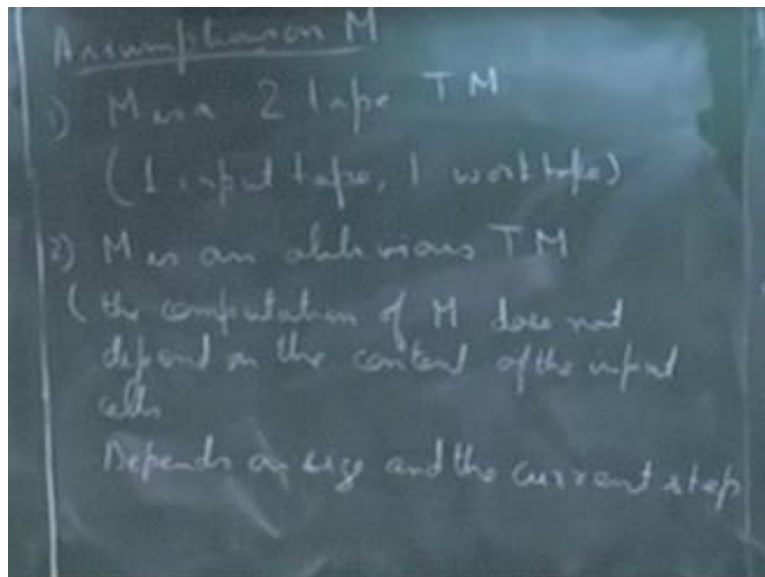 Assumption on M
1) M is a 2 tape TM
(1 input tape, 1 work tape)
2) M is an oblivious TM
(the computation of M does not
depend on the content of the input
cells
Depends on size and the current step